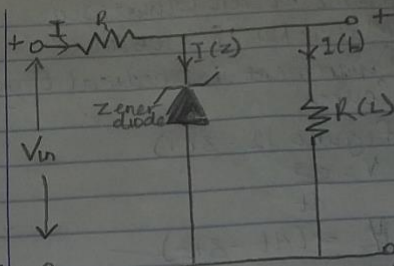 I R +
+ I(z) I(L)
Zener
diode
R(L)
Vin